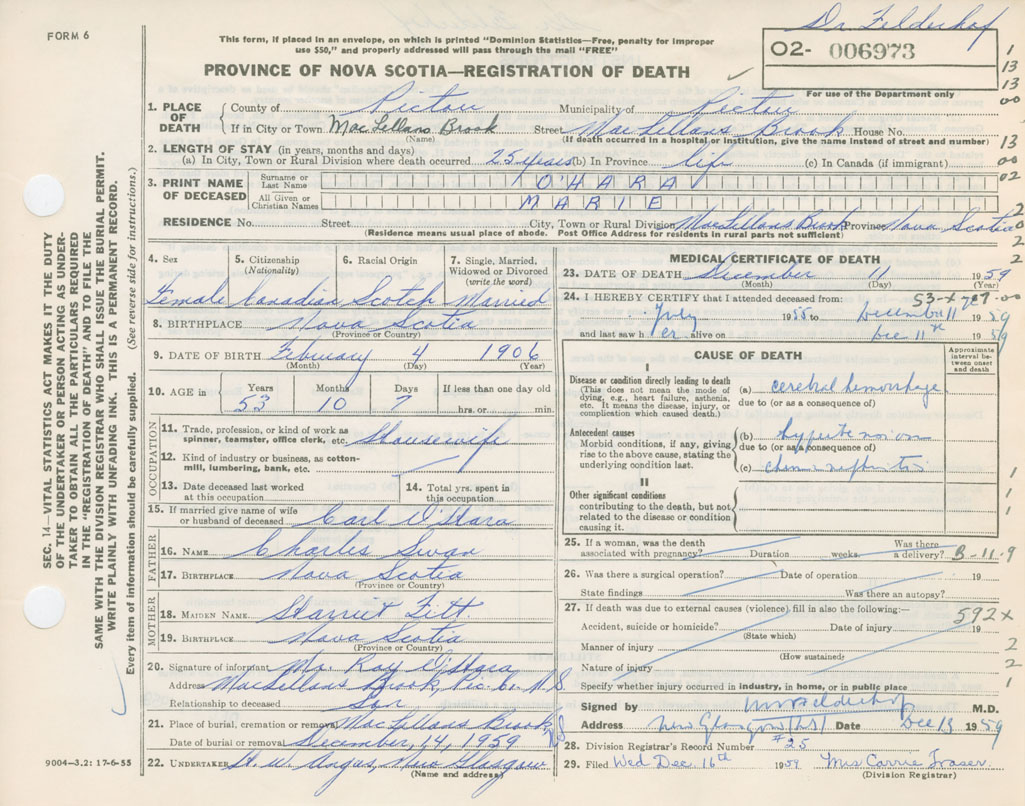 Dr. Felderhof
FORM 6
This form, if placed in an envelope, on which is printed "Dominion Statistics—Free, penalty for improper
use $50," and properly addressed will pass through the mail "FREE"
02- 006973
PROVINCE OF NOVA SCOTIA—REGISTRATION OF DEATH
For use of the Department only
1
13
13
00
13
00
02
2
0
2
1. PLACE OF DEATH
County of Pictou Municipality of Pictou
If in City or Town MacLellans Brook Street MacLellans Brook House No.
(Name) (If death occurred in a hospital or institution, give the name instead of street and number)
2. LENGTH OF STAY (in years, months and days)
(a) In City, Town or Rural Division where death occurred 25 years (b) In Province life (c) In Canada (if immigrant)
3. PRINT NAME OF DECEASED
Surname or Last Name O'HARA
All Given or Christian Names MARIE
RESIDENCE No. Street City, Town or Rural Division MacLellans Brook Province Nova Scotia
(Residence means usual place of abode. Post Office Address for residents in rural parts not sufficient)
4. Sex
Female
5. Citizenship (Nationality)
Canadian
6. Racial Origin
Scotch
7. Single, Married, Widowed or Divorced (write the word)
Married
8. BIRTHPLACE Nova Scotia
(Province or Country)
9. DATE OF BIRTH February 4 1906
(Month) (Day) (Year)
10. AGE in Years Months Days If less than one day old
53 10 7 hrs. or min.
OCCUPATION
11. Trade, profession, or kind of work as
spinner, teamster, office clerk, etc. Housewife
12. Kind of industry or business, as cotton-
mill, lumbering, bank, etc.
13. Date deceased last worked
at this occupation
14. Total yrs. spent in
this occupation
15. If married give name of wife
or husband of deceased Carl O'Hara
FATHER
16. NAME Charles Swan
17. BIRTHPLACE Nova Scotia
(Province or Country)
MOTHER
18. MAIDEN NAME Harriet Fitt
19. BIRTHPLACE Nova Scotia
(Province or Country)
20. Signature of informant Mr. Roy O'Hara
Address MacLellans Brook, Pic. Co. N.S.
Relationship to deceased Son
21. Place of burial, cremation or removal MacLellans Brook NS
Date of burial or removal December, 14, 1959
22. UNDERTAKER H. W. Angus, New Glasgow
(Name and address)
MEDICAL CERTIFICATE OF DEATH
23. DATE OF DEATH December 11 1959
(Month) (Day) (Year)
24. I HEREBY CERTIFY that I attended deceased from:
July 1955 to December 11 1959
and last saw her alive on Dec 11th 1959
CAUSE OF DEATH
Approximate interval between onset and death
I
Disease or condition directly leading to death
(This does not mean the mode of
dying, e.g., heart failure, asthenia,
etc. It means the disease, injury, or
complication which caused death.)
(a) cerebral hemorrhage
due to (or as a consequence of)
Antecedent causes
Morbid conditions, if any, giving
rise to the above cause, stating the
underlying condition last.
(b) hypertension
due to (or as a consequence of)
(c) chronic nephritis
II
Other significant conditions
contributing to the death, but not
related to the disease or condition
causing it.
1
1
1
25. If a woman, was the death Was there
associated with pregnancy? Duration weeks a delivery? B-11-9
26. Was there a surgical operation? Date of operation 19
State findings Was there an autopsy?
27. If death was due to external causes (violence) fill in also the following:—
592x
Accident, suicide or homicide? Date of injury 19
(State which)
Manner of injury 2
(How sustained)
Nature of injury 2
Specify whether injury occurred in industry, in home, or in public place 1
Signed by M.D.
Address New Glasgow NS Date Dec 13 1959
28. Division Registrar's Record Number #25
29. Filed Wed Dec. 16th 1959 Mrs Carrie Fraser
(Division Registrar)
9004—3.2: 17-6-55
SEC. 14—VITAL STATISTICS ACT MAKES IT THE DUTY
OF THE UNDERTAKER OR PERSON ACTING AS UNDER-
TAKER TO OBTAIN ALL THE PARTICULARS REQUIRED
IN THE "REGISTRATION OF DEATH" AND TO FILE THE
SAME WITH THE DIVISION REGISTRAR WHO SHALL ISSUE THE BURIAL PERMIT.
WRITE PLAINLY WITH UNFADING INK. THIS IS A PERMANENT RECORD.
Every item of information should be carefully supplied. (See reverse side for instructions.)